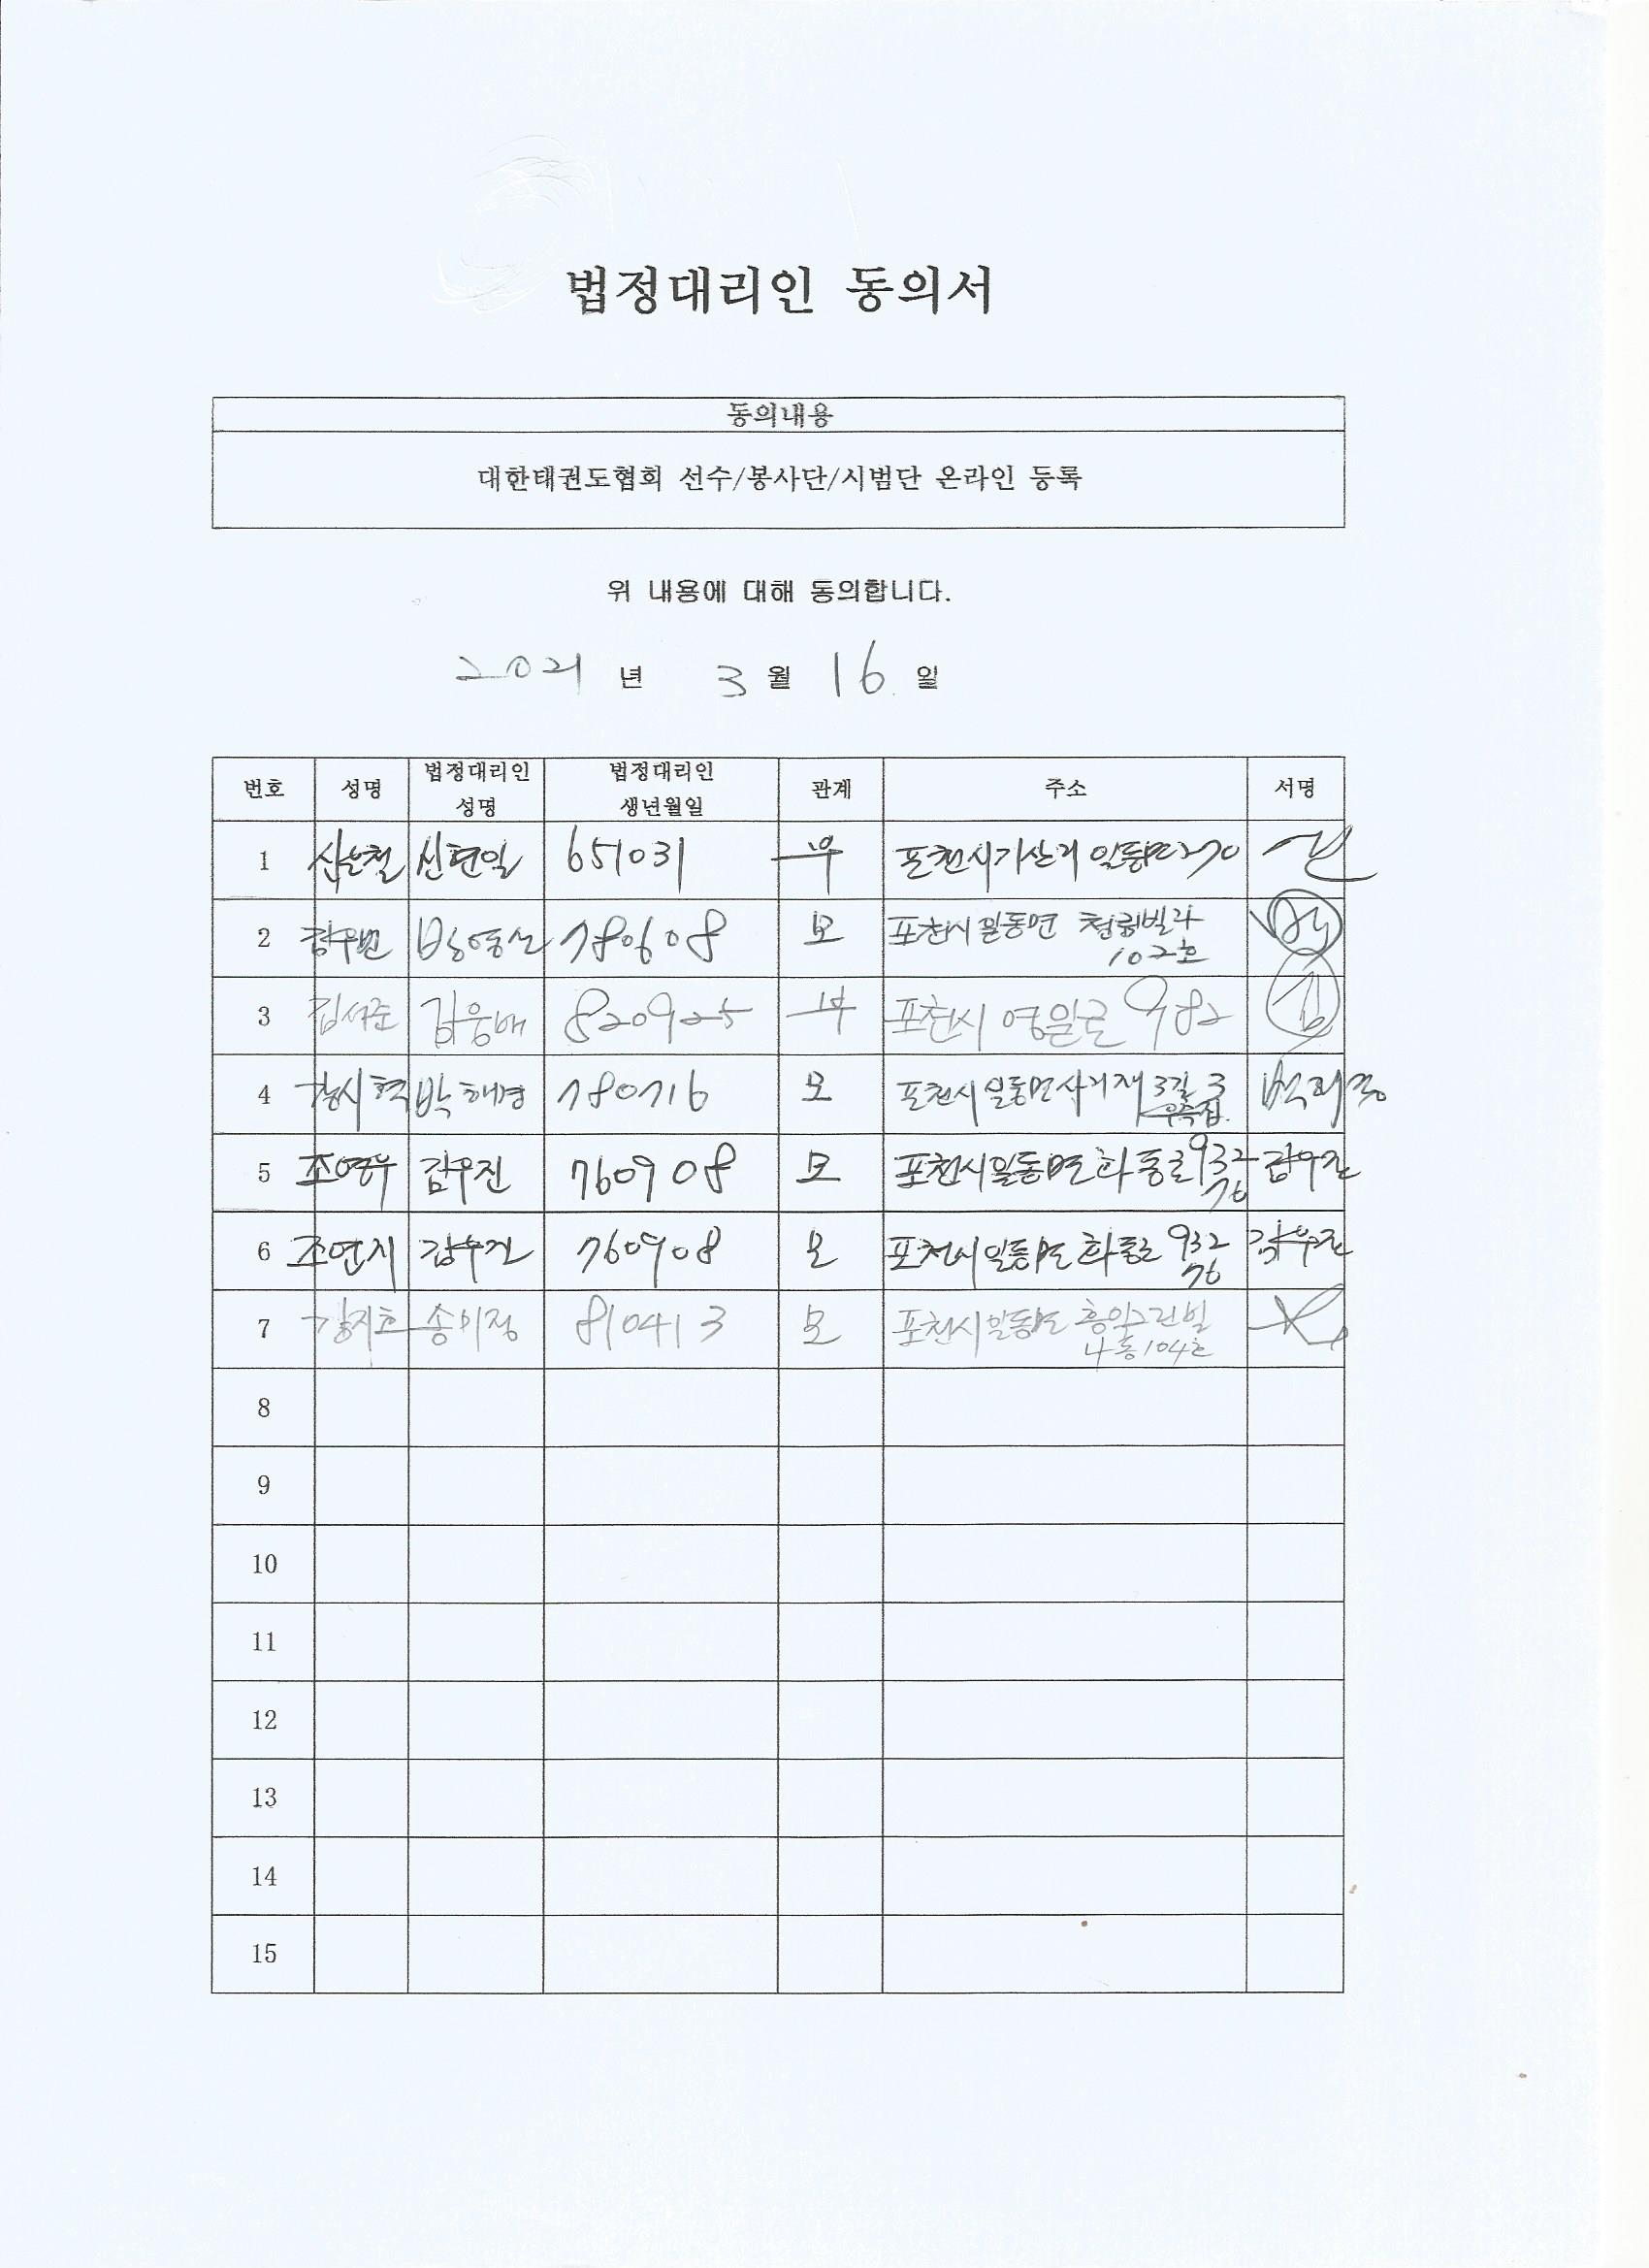 법정대리인 동의서
동의내용
대한태권도협회 선수/봉사단/시범단 온라인 등록
위 내용에 대해 동의합니다.
2021 년 3 월 16 일
번호 성명 법정대리인 성명 법정대리인 생년월일 관계 주소 서명
1 신현일 651031 부 포천시 기산리 일동면 270
2 780608 모 포천시 일동면 청림빌라
102호
3 김서준 김웅배 820925 부 포천시 영일로 982
4 박해경 780716 모 포천시 일동면 사기재 3길 3
우측집
5 조영우 김우진 760908 모 포천시 일동면 화동로 932 김우진
76
6 조연지 김우진 760908 모 포천시 일동면 화동로 932 김우진
76
7 강지호 송미정 810413 모 포천시 일동면
나동 104호
8
9
10
11
12
13
14
15